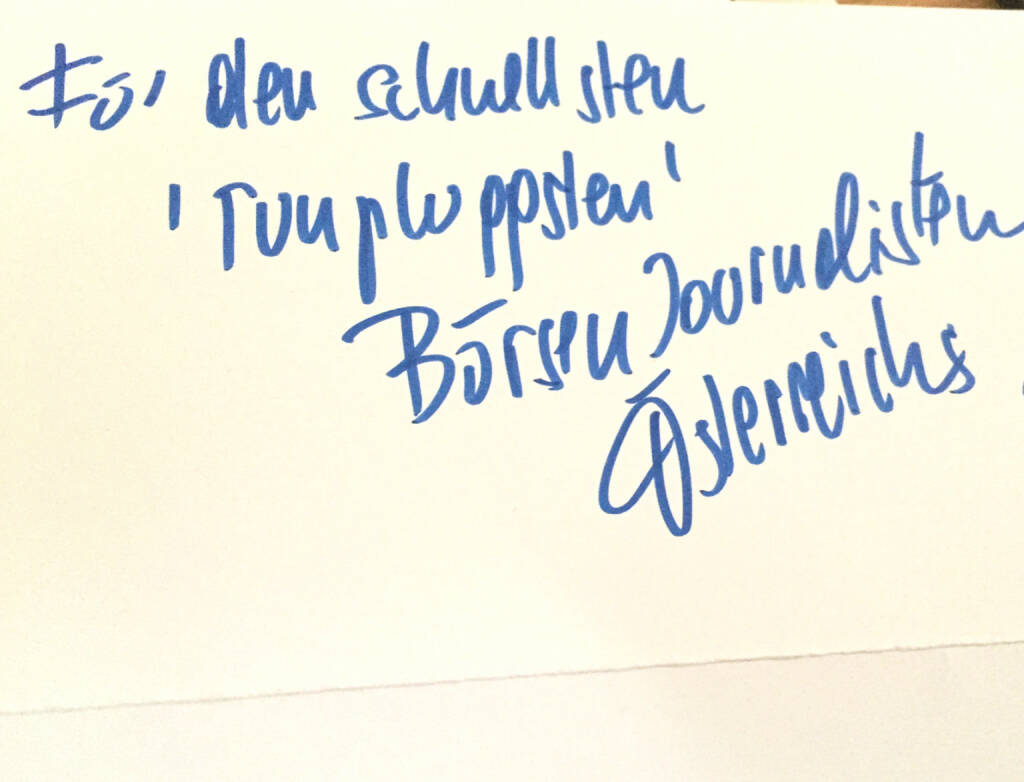 Für den schnellsten
'runpluggsten'
Börsen Journalisten
Österreichs.